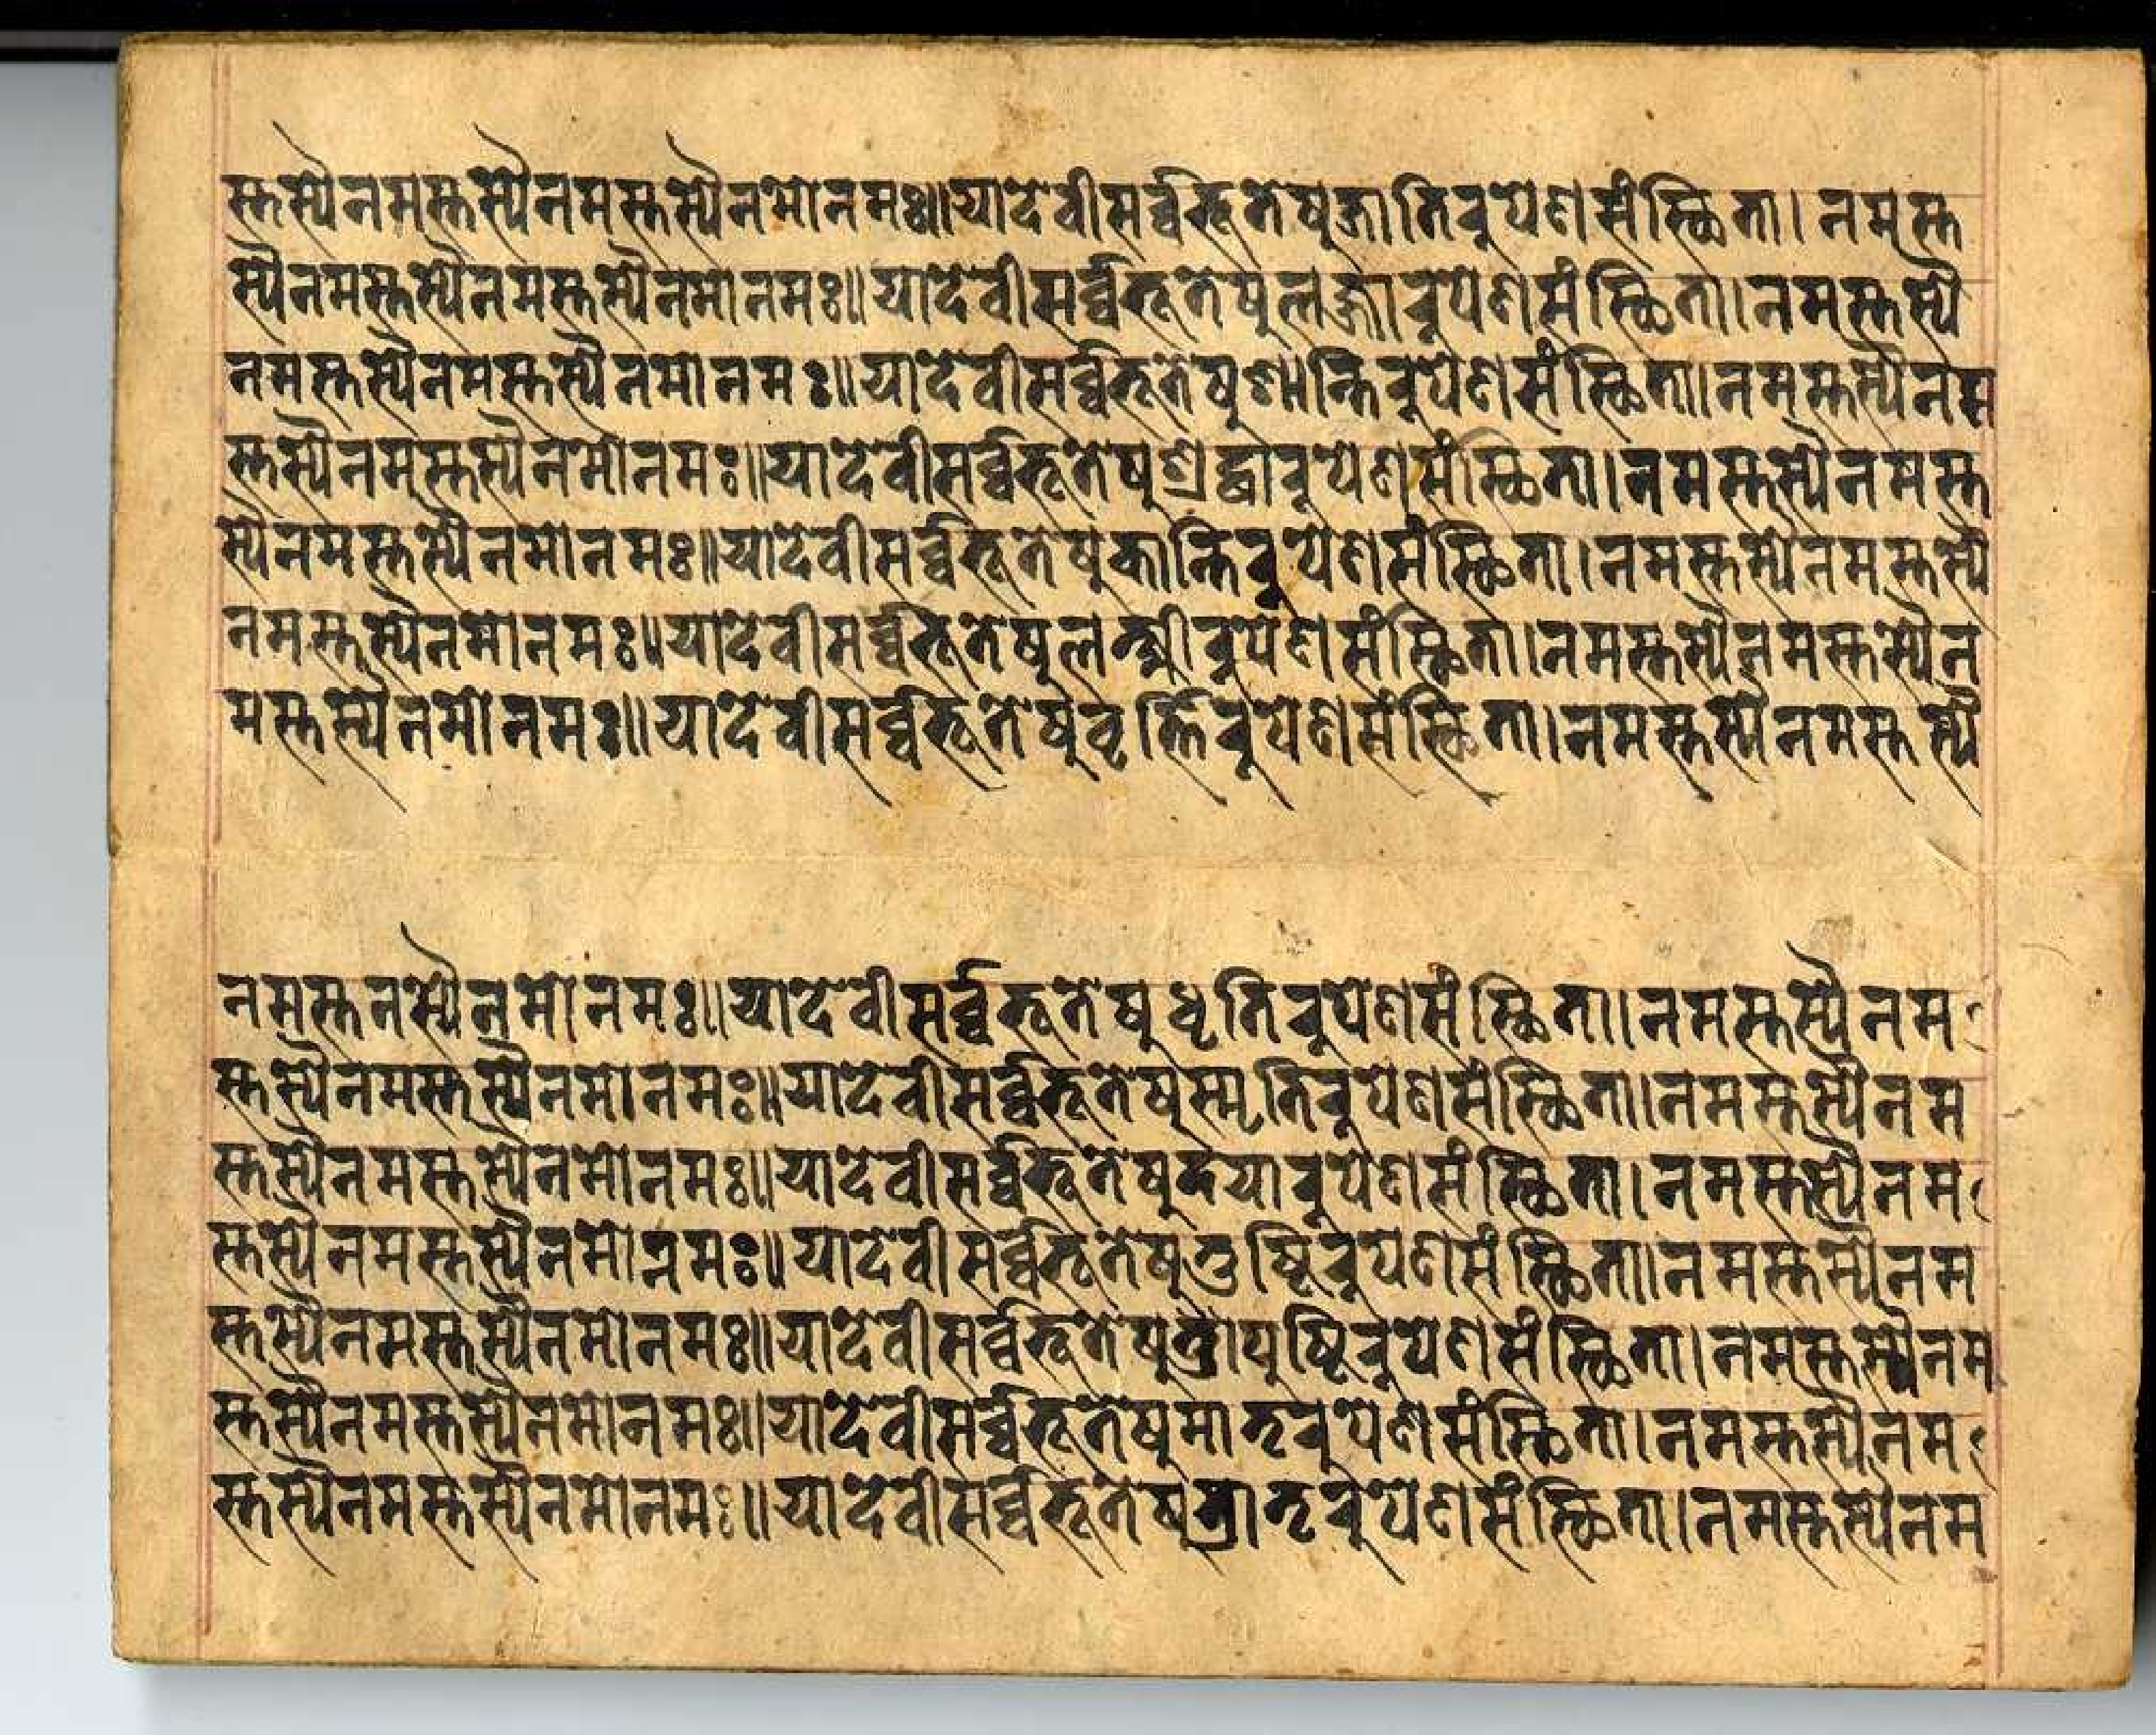 स्तस्यैनमस्तस्यैनमस्तस्यैनमोनमः॥यादेवीसर्व्वभूतेषुजातिरुपेणसंस्थिता।नमस्त
स्यैनमस्तस्यैनमस्तस्यैनमोनमः॥यादेवीसर्व्वभूतेषुलज्जारुपेणसंस्थिता।नमस्तस्यै
नमस्तस्यैनमस्तस्यैनमोनमः॥यादेवीसर्व्वभूतेषुशान्तिरुपेणसंस्थिता।नमस्तस्यैनम
स्तस्यैनमस्तस्यैनमोनमः॥यादेवीसर्व्वभूतेषुश्रद्धारुपेणसंस्थिता।नमस्तस्यैनमस्त
स्यैनमस्तस्यैनमोनमः॥यादेवीसर्व्वभूतेषुकान्तिरुपेणसंस्थिता।नमस्तस्यैनमस्तस्यै
नमस्तस्यैनमोनमः॥यादेवीसर्व्वभूतेषुलक्ष्मीरुपेणसंस्थिता।नमस्तस्यैनमस्तस्यैन
मस्तस्यैनमोनमः॥यादेवीसर्व्वभूतेषुवृत्तिरुपेणसंस्थिता।नमस्तस्यैनमस्तस्यै
नमस्तनस्यैनमोनमः॥यादेवीसर्व्वभूतेषुधृतिरुपेणसंस्थिता।नमस्तस्यैनम
स्तस्यैनमस्तस्यैनमोनमः॥यादेवीसर्व्वभूतेषुस्मृतिरुपेणसंस्थिता।नमस्तस्यैनम
स्तस्यैनमस्तस्यैनमोनमः॥यादेवीसर्व्वभूतेषुदयारुपेणसंस्थिता।नमस्तस्यैनम
स्तस्यैनमस्तस्यैनमोनमः॥यादेवीसर्व्वभूतेषुतुष्टिरुपेणसंस्थिता।नमस्तस्यैनम
स्तस्यैनमस्तस्यैनमोनमः॥यादेवीसर्व्वभूतेषुपुष्टिरुपेणसंस्थिता।नमस्तस्यैनम
स्तस्यैनमस्तस्यैनमोनमः॥यादेवीसर्व्वभूतेषुमातृरुपेणसंस्थिता।नमस्तस्यैनम
स्तस्यैनमस्तस्यैनमोनमः॥यादेवीसर्व्वभूतेषभ्रातृरुपेणसंस्थिता।नमस्तस्यैनम